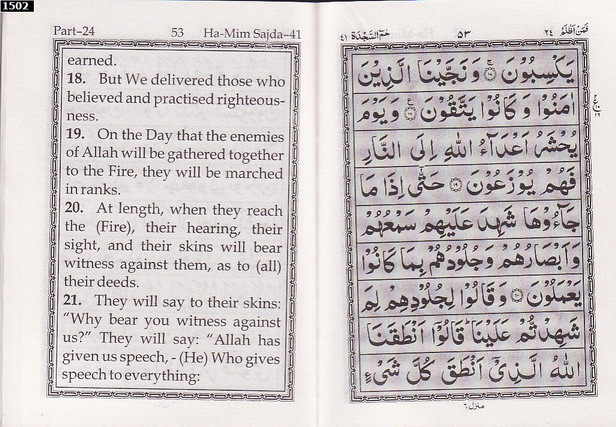 1502
Part–24 53 Ha-Mim Sajda–41
earned.
18. But We delivered those who
believed and practised righteous-
ness.
19. On the Day that the enemies
of Allah will be gathered together
to the Fire, they will be marched
in ranks.
20. At length, when they reach
the (Fire), their hearing, their
sight, and their skins will bear
witness against them, as to (all)
their deeds.
21. They will say to their skins:
“Why bear you witness against
us?” They will say: “Allah has
given us speech, - (He) Who gives
speech to everything:
حٰمٓ السَّجْدَة ٤١ ٥٣ فَمَنْ اَظْلَمُ ٢٤
يَكْسِبُوْنَ ۝ وَنَجَّيْنَا الَّذِيْنَ
اٰمَنُوْا وَكَانُوْا يَتَّقُوْنَ ۝ وَيَوْمَ
يُحْشَرُ اَعْدَآءُ اللّٰهِ اِلَى النَّارِ
فَهُمْ يُوْزَعُوْنَ ۝ حَتّٰى اِذَا مَا
جَآءُوْهَا شَهِدَ عَلَيْهِمْ سَمْعُهُمْ
وَاَبْصَارُهُمْ وَجُلُوْدُهُمْ بِمَا كَانُوْا
يَعْمَلُوْنَ ۝ وَقَالُوْا لِجُلُوْدِهِمْ لِمَ
شَهِدْتُّمْ عَلَيْنَا قَالُوْٓا اَنْطَقَنَا
اللّٰهُ الَّذِيْٓ اَنْطَقَ كُلَّ شَيْءٍ
منزل ٦